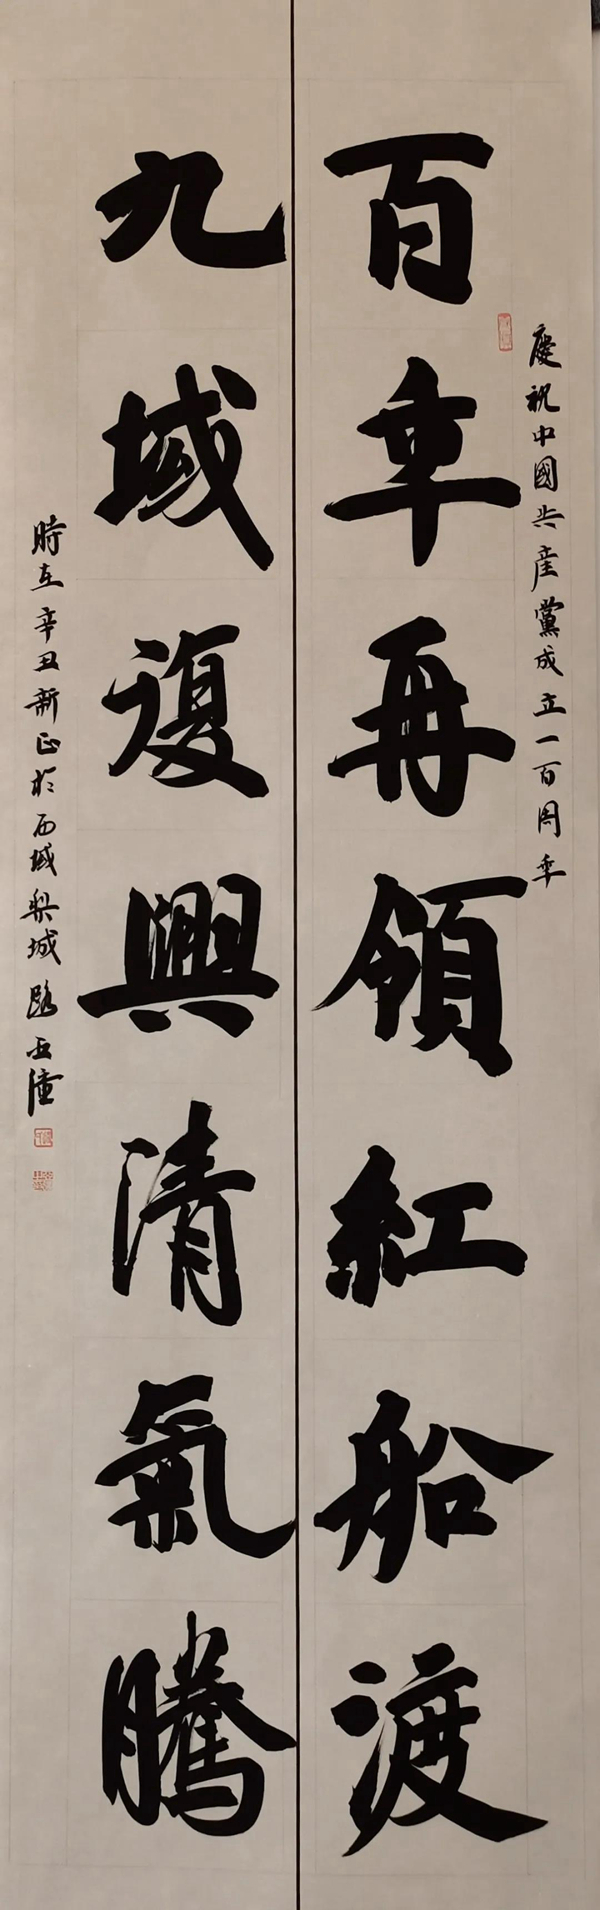 慶祝中國共產黨成立一百周年
百年再領紅船渡
九域復興清氣騰
時在辛丑新正於西域梨城路亞潼